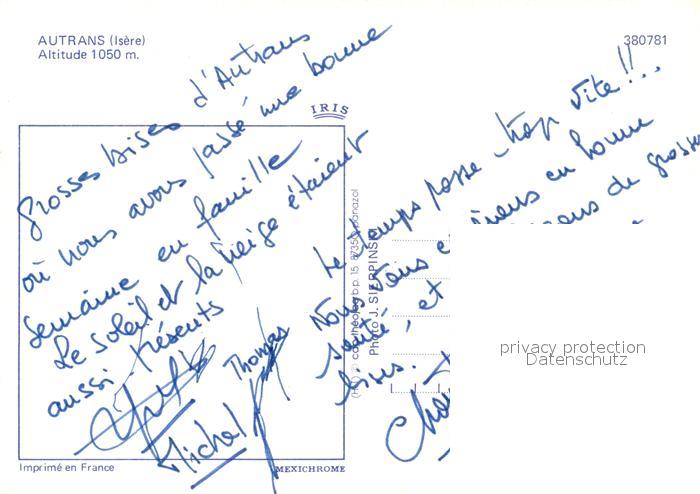 AUTRANS (Isère)
Altitude 1050 m.
380781
IRIS
Grosses bises d'Autrans
où nous avons passé une bonne
semaine en famille
Le soleil et la neige étaient
aussi présents
Thomas
Michel
Le temps passe trop vite!!...
en bonne
santé, et
de grosses
bises.
Photo J. SIERPINSKI
privacy protection
Datenschutz
Imprimé en France
MEXICHROME